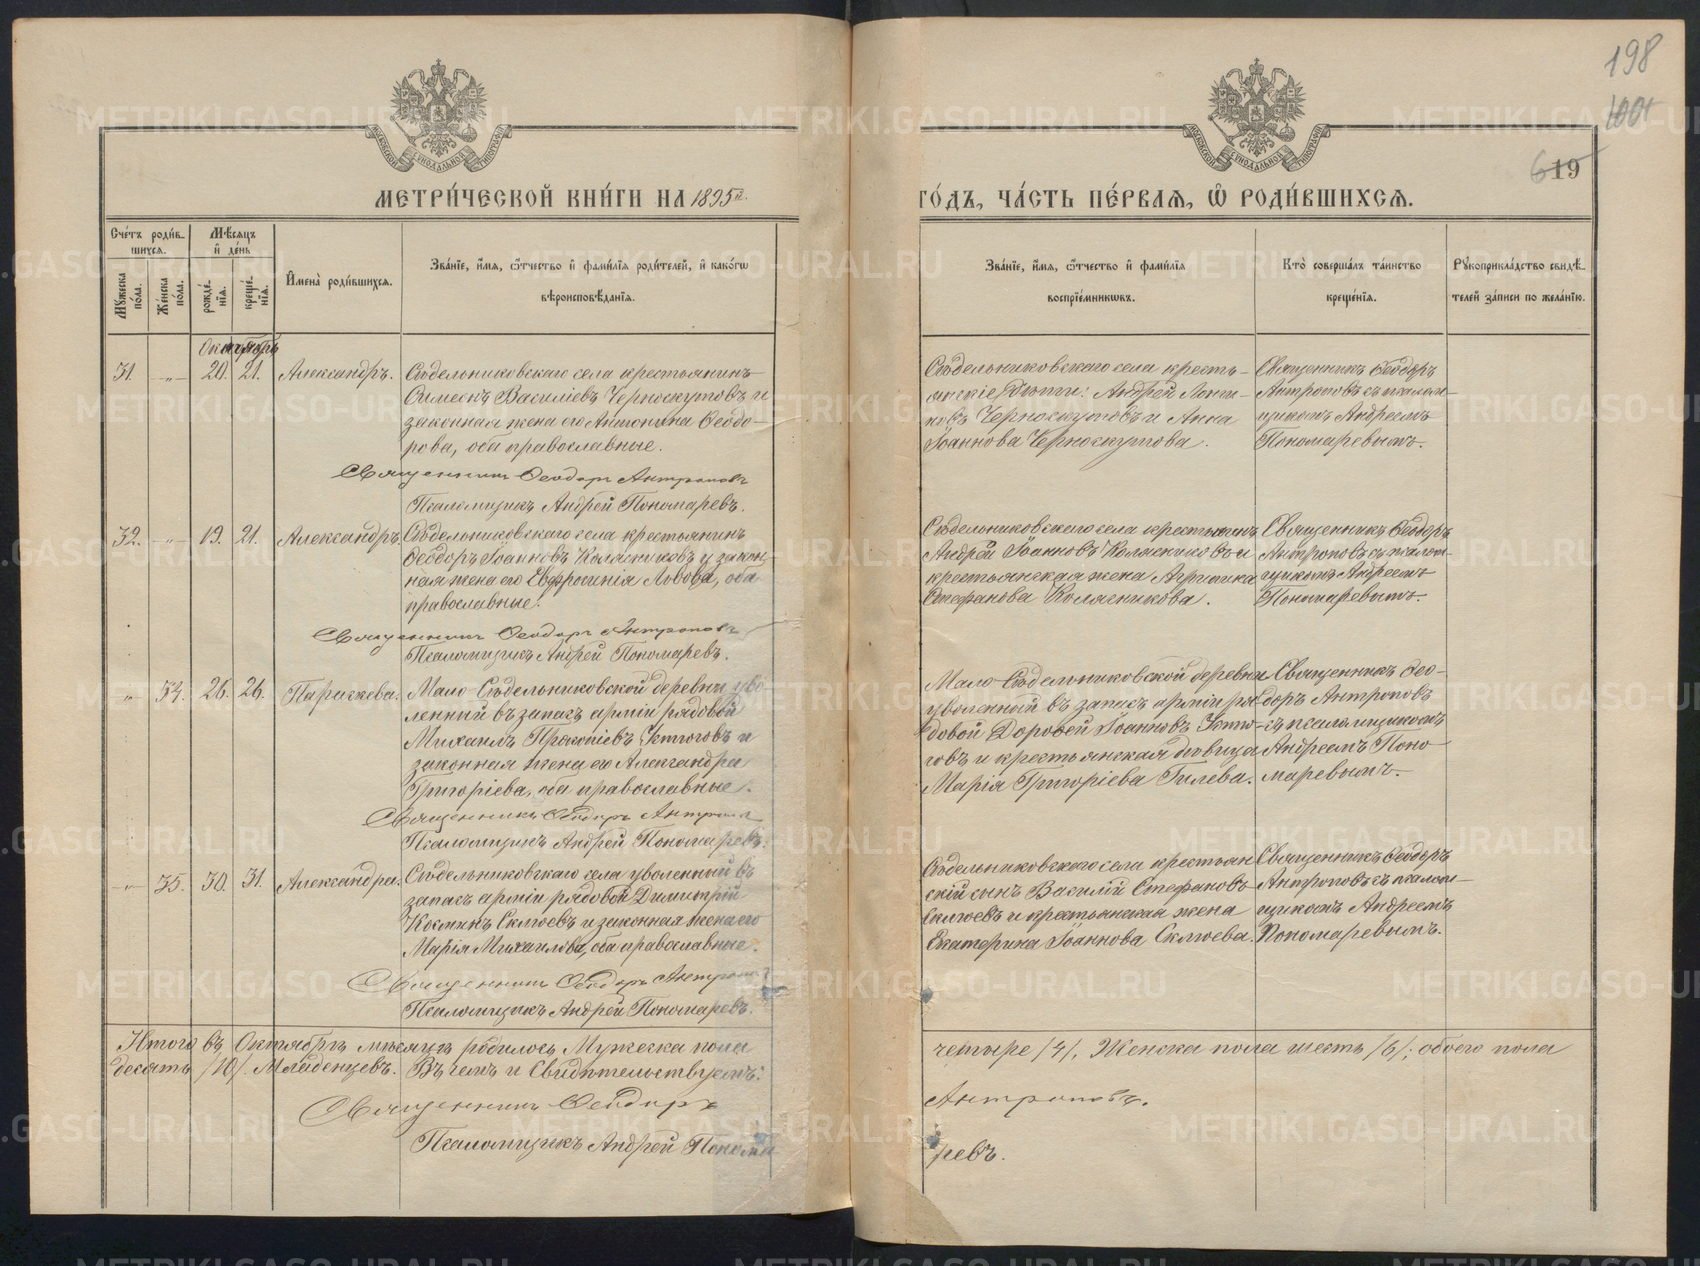 198
1001
6 19
МЕТРИ́ЧЕСКОЙ КНИ́ГИ НА 1895й.
ГО́ДЪ, ЧА́СТЬ ПЕ́РВАѦ, Ѡ РОДИ́ВШИХСѦ.
Сче́тъ роди́в-
шихсѧ.
Мѣ́сѧцъ
и́ де́нь
Мꙋ́жеска
по́ла.
Же́нска
по́ла.
рожде́-
нїѧ.
креще́-
нїѧ.
И҆мена̀ роди́вшихсѧ.
Зва́нїе, и҆́мѧ, ѻ҆́тчество и҆ фами́лїѧ роди́телей, и҆ како́гѡ
вѣроисповѣ́данїѧ.
Зва́нїе, и҆́мѧ, ѻ҆́тчество и҆ фами́лїѧ
воспрїе́мникѡвъ.
Кто̀ соверша́лъ та́инство
креще́нїѧ.
Рꙋкоприкла́дство свидѣ́-
телей за́писи по жела́нїю.
Октябрь
31. -"- 20. 21. Александръ.
Сѣдельниковскаго села крестьянинъ
Василіевъ Черноскутовъ и
законная жена его Антонина Ѳеодо-
рова, оба православные.
Священникъ Ѳеодоръ Антроповъ
Псаломщикъ Андрей Пономаревъ.
Сѣдельниковскаго села кресть-
янскіе дѣти: Андрей Логи-
новъ Черноскутовъ и Анна
Іоаннова Черноскутова.
Священникъ Ѳеодоръ
Антроповъ съ псалом-
щикомъ Андреемъ
Пономаревымъ.
32. -"- 19. 21. Александръ.
Сѣдельниковскаго села крестьянинъ
Ѳеодоръ Іоанновъ Колясниковъ и закон-
ная жена его Евфросинія Львова, оба
православные.
Священникъ Ѳеодоръ Антроповъ
Псаломщикъ Андрей Пономаревъ.
Сѣдельниковскаго села крестьянинъ
Андрей Іоанновъ Колясниковъ и
крестьянская жена
Стефанова Колясникова.
Священникъ Ѳеодоръ
Антроповъ съ псалом-
щикомъ Андреемъ
Пономаревымъ.
" 34. 26. 26. Параскева.
Мало-Сѣдельниковской деревни уво-
ленный въ запасъ арміи рядовой
Михаилъ Прокопіевъ Устюговъ и
законная жена его Александра
Григоріева, оба православные.
Священникъ Ѳеодоръ Антроповъ
Псаломщикъ Андрей Пономаревъ.
Мало-Сѣдельниковской деревни
уволенный въ запасъ арміи ря-
довой Дороѳей Іоанновъ Устю-
говъ и крестьянская дѣвица
Марія Григоріева Гилева.
Священникъ Ѳео-
доръ Антроповъ
съ псаломщикомъ
Андреемъ Поно-
маревымъ.
-"- 35. 30. 31. Александра.
Сѣдельниковскаго села уволенный въ
запасъ арміи рядовой Димитрій
Косминъ Склюевъ и законная жена его
Марія Михаилова, оба православные.
Священникъ Ѳеодоръ Антроповъ
Псаломщикъ Андрей Пономаревъ.
Сѣдельниковскаго села крестьян-
скій сынъ Василій Стефановъ
Склюевъ и крестьянская жена
Екатерина Іоаннова Склюева.
Священникъ Ѳеодоръ
Антроповъ съ псалом-
щикомъ Андреемъ
Пономаревымъ.
Итого въ Октябрѣ мѣсяцѣ родилось Мужеска пола четыре /4/, Женска пола шесть /6/; обоего пола
десять /10/ Младенцевъ. Въ чемъ и свидѣтельствуемъ:
Священникъ Ѳеодоръ Антроповъ.
Псаломщикъ Андрей Пономаревъ.